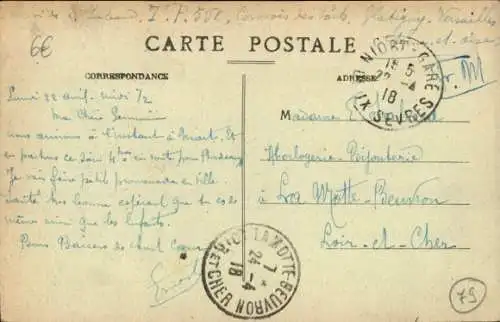 6€
I. P. 501, Convois des Glatigny. Versailles
CARTE POSTALE
CORRESPONDANCE
ADRESSE
NIORT-GARE
15 5
22 -4
18
DX SEVRES
F. M
Lundi 22 avril midi 1/2
Ma Chère Germaine
nous arrivons à l'instant à Niort. Et
en partons ce soir 4 h en route pour
Je vais faire petit promenade en ville
Santé très bonne espérant que tu es de
même ainsi que les enfants.
Bons Baisers de tout Coeur
Madame E.
Horlogerie-Bijouterie
à La Motte-Beuvron
Loir-et-Cher
LAMOTTE-BEUVRON
7 *
24 -4
18
LOIR ET CHER
79